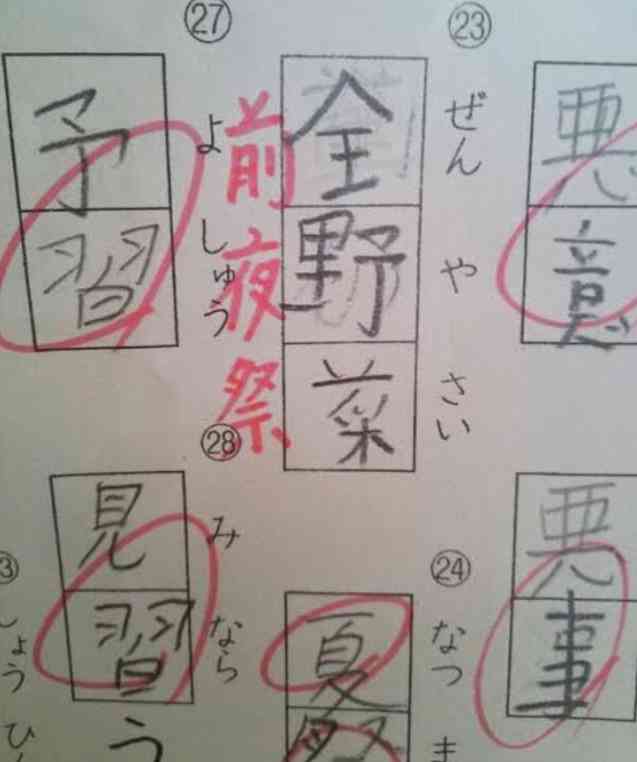 悪意
㉓
ぜんやさい
全野菜
前夜祭
㉗
よしゅう
予習
悪事
㉔
なつま
夏祭
㉘
みなら
見習う
3
しょうひ